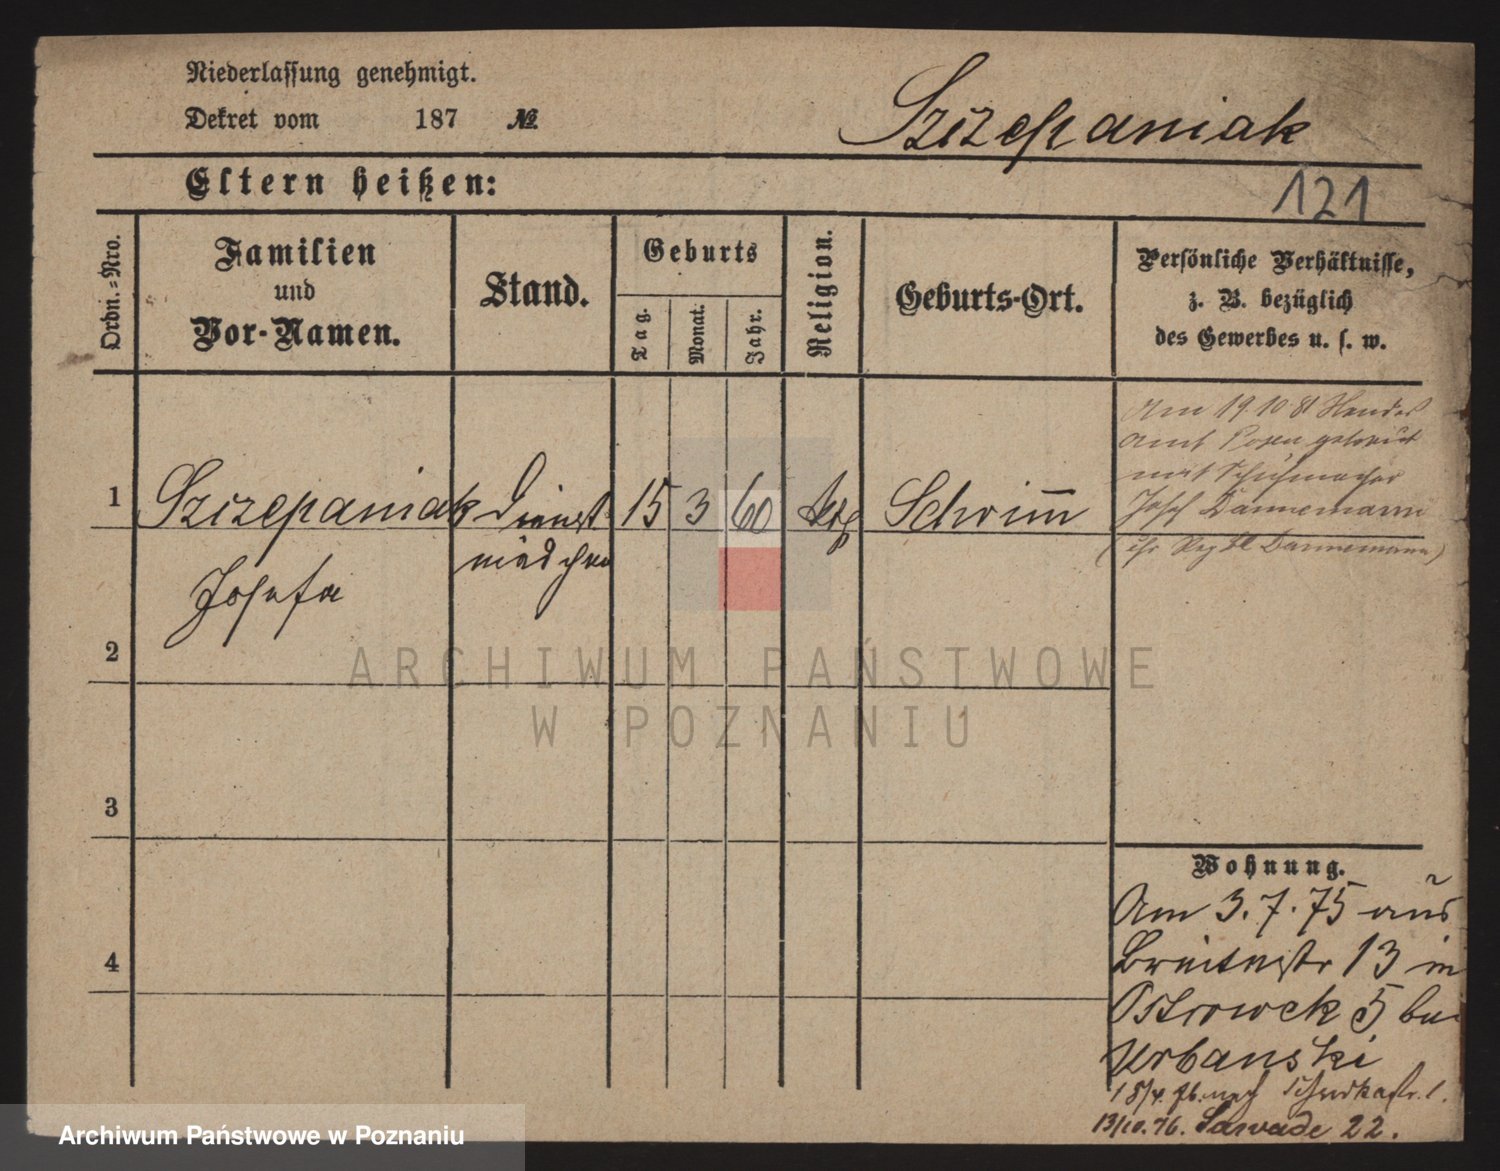 Niederlassung genehmigt.
Dekret vom 187 №
Szczepaniak
Eltern heißen:
121
Ordn.=Nro.
Familien
und
Vor-Namen.
Stand.
Geburts
Tag.
Monat.
Jahr.
Religion.
Geburts-Ort.
Persönliche Verhältnisse,
z. B. bezüglich
des Gewerbes u. s. w.
1 Szczepaniak Dienst 15 3 60 Schrimm
mädchen
Josefa
Am 19.10.81 Standes
amt Posen getraut
mit Schuhmacher
Josef Dannemann
Dannemann)
2
3
4
Wohnung.
Am 3.7.75 aus
Breitestr 13 in
Ostrowek 5 bei
Urbanski
18/4.76. nach
13/10.76. Sawade 22.
ARCHIWUM PAŃSTWOWE
W POZNANIU
Archiwum Państwowe w Poznaniu